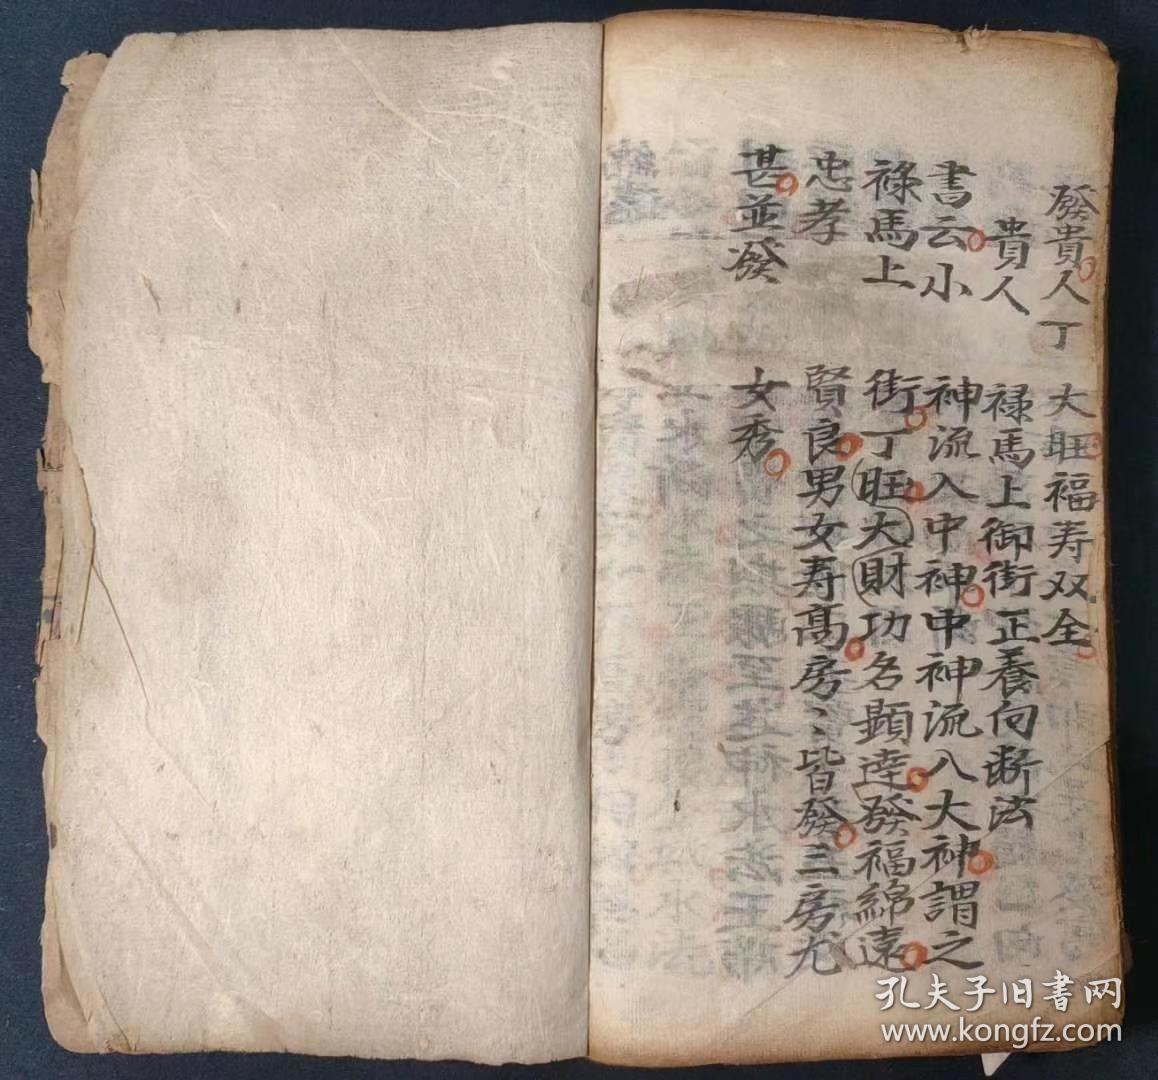 發貴人丁大旺福寿双全
貴人禄馬上御街正養向断法
書云小神流入中神中神流八大神謂之
禄馬上街丁旺大財功名顯達發福綿遠
忠孝賢良男女寿高房〻皆發三房尤
甚並發女秀
孔夫子旧书网
www.kongfz.com